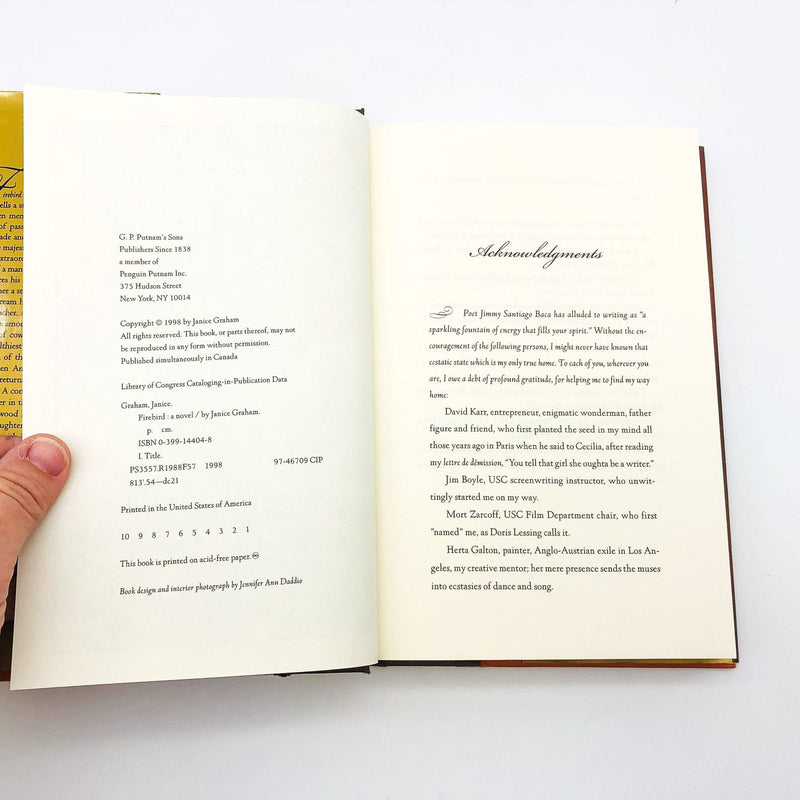 irebird
ells a s
en men
of pas
ade and
e majes
xtraore
a man
res his
er a st
ream h
cher, a
of cow
lthiest
of the
en An
return
A con
wood
aughte
G. P. Putnam's Sons
Publishers Since 1838
a member of
Penguin Putnam Inc.
375 Hudson Street
New York, NY 10014
Copyright © 1998 by Janice Graham
All rights reserved. This book, or parts thereof, may not
be reproduced in any form without permission.
Published simultaneously in Canada
Library of Congress Cataloging-in-Publication Data
Graham, Janice.
Firebird : a novel / by Janice Graham.
p. cm.
ISBN 0-399-14404-8
I. Title.
PS3557.R1988F57 1998 97-46709 CIP
813'.54—dc21
Printed in the United States of America
10 9 8 7 6 5 4 3 2 1
This book is printed on acid-free paper. ♾
Book design and interior photograph by Jennifer Ann Daddio
Acknowledgments
Poet Jimmy Santiago Baca has alluded to writing as "a
sparkling fountain of energy that fills your spirit." Without the en-
couragement of the following persons, I might never have known that
ecstatic state which is my only true home. To each of you, wherever you
are, I owe a debt of profound gratitude, for helping me to find my way
home:
David Karr, entrepreneur, enigmatic wonderman, father
figure and friend, who first planted the seed in my mind all
those years ago in Paris when he said to Cecilia, after reading
my lettre de démission, "You tell that girl she oughta be a writer."
Jim Boyle, USC screenwriting instructor, who unwit-
tingly started me on my way.
Mort Zarcoff, USC Film Department chair, who first
"named" me, as Doris Lessing calls it.
Herta Galton, painter, Anglo-Austrian exile in Los An-
geles, my creative mentor; her mere presence sends the muses
into ecstasies of dance and song.